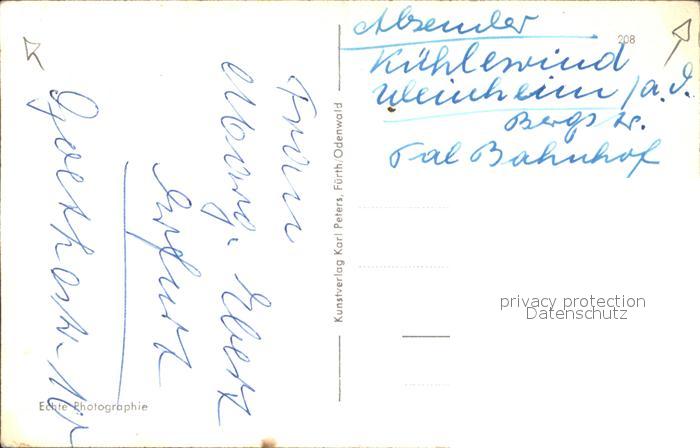 Absender
208
Kühlewind
Weinheim / a. d.
Bergstr.
Tal Bahnhof
Frau
Marg. Ebert
Erfurt
Goethestr.
Kunstverlag Karl Peters, Fürth/Odenwald
privacy protection
Datenschutz
Echte Photographie